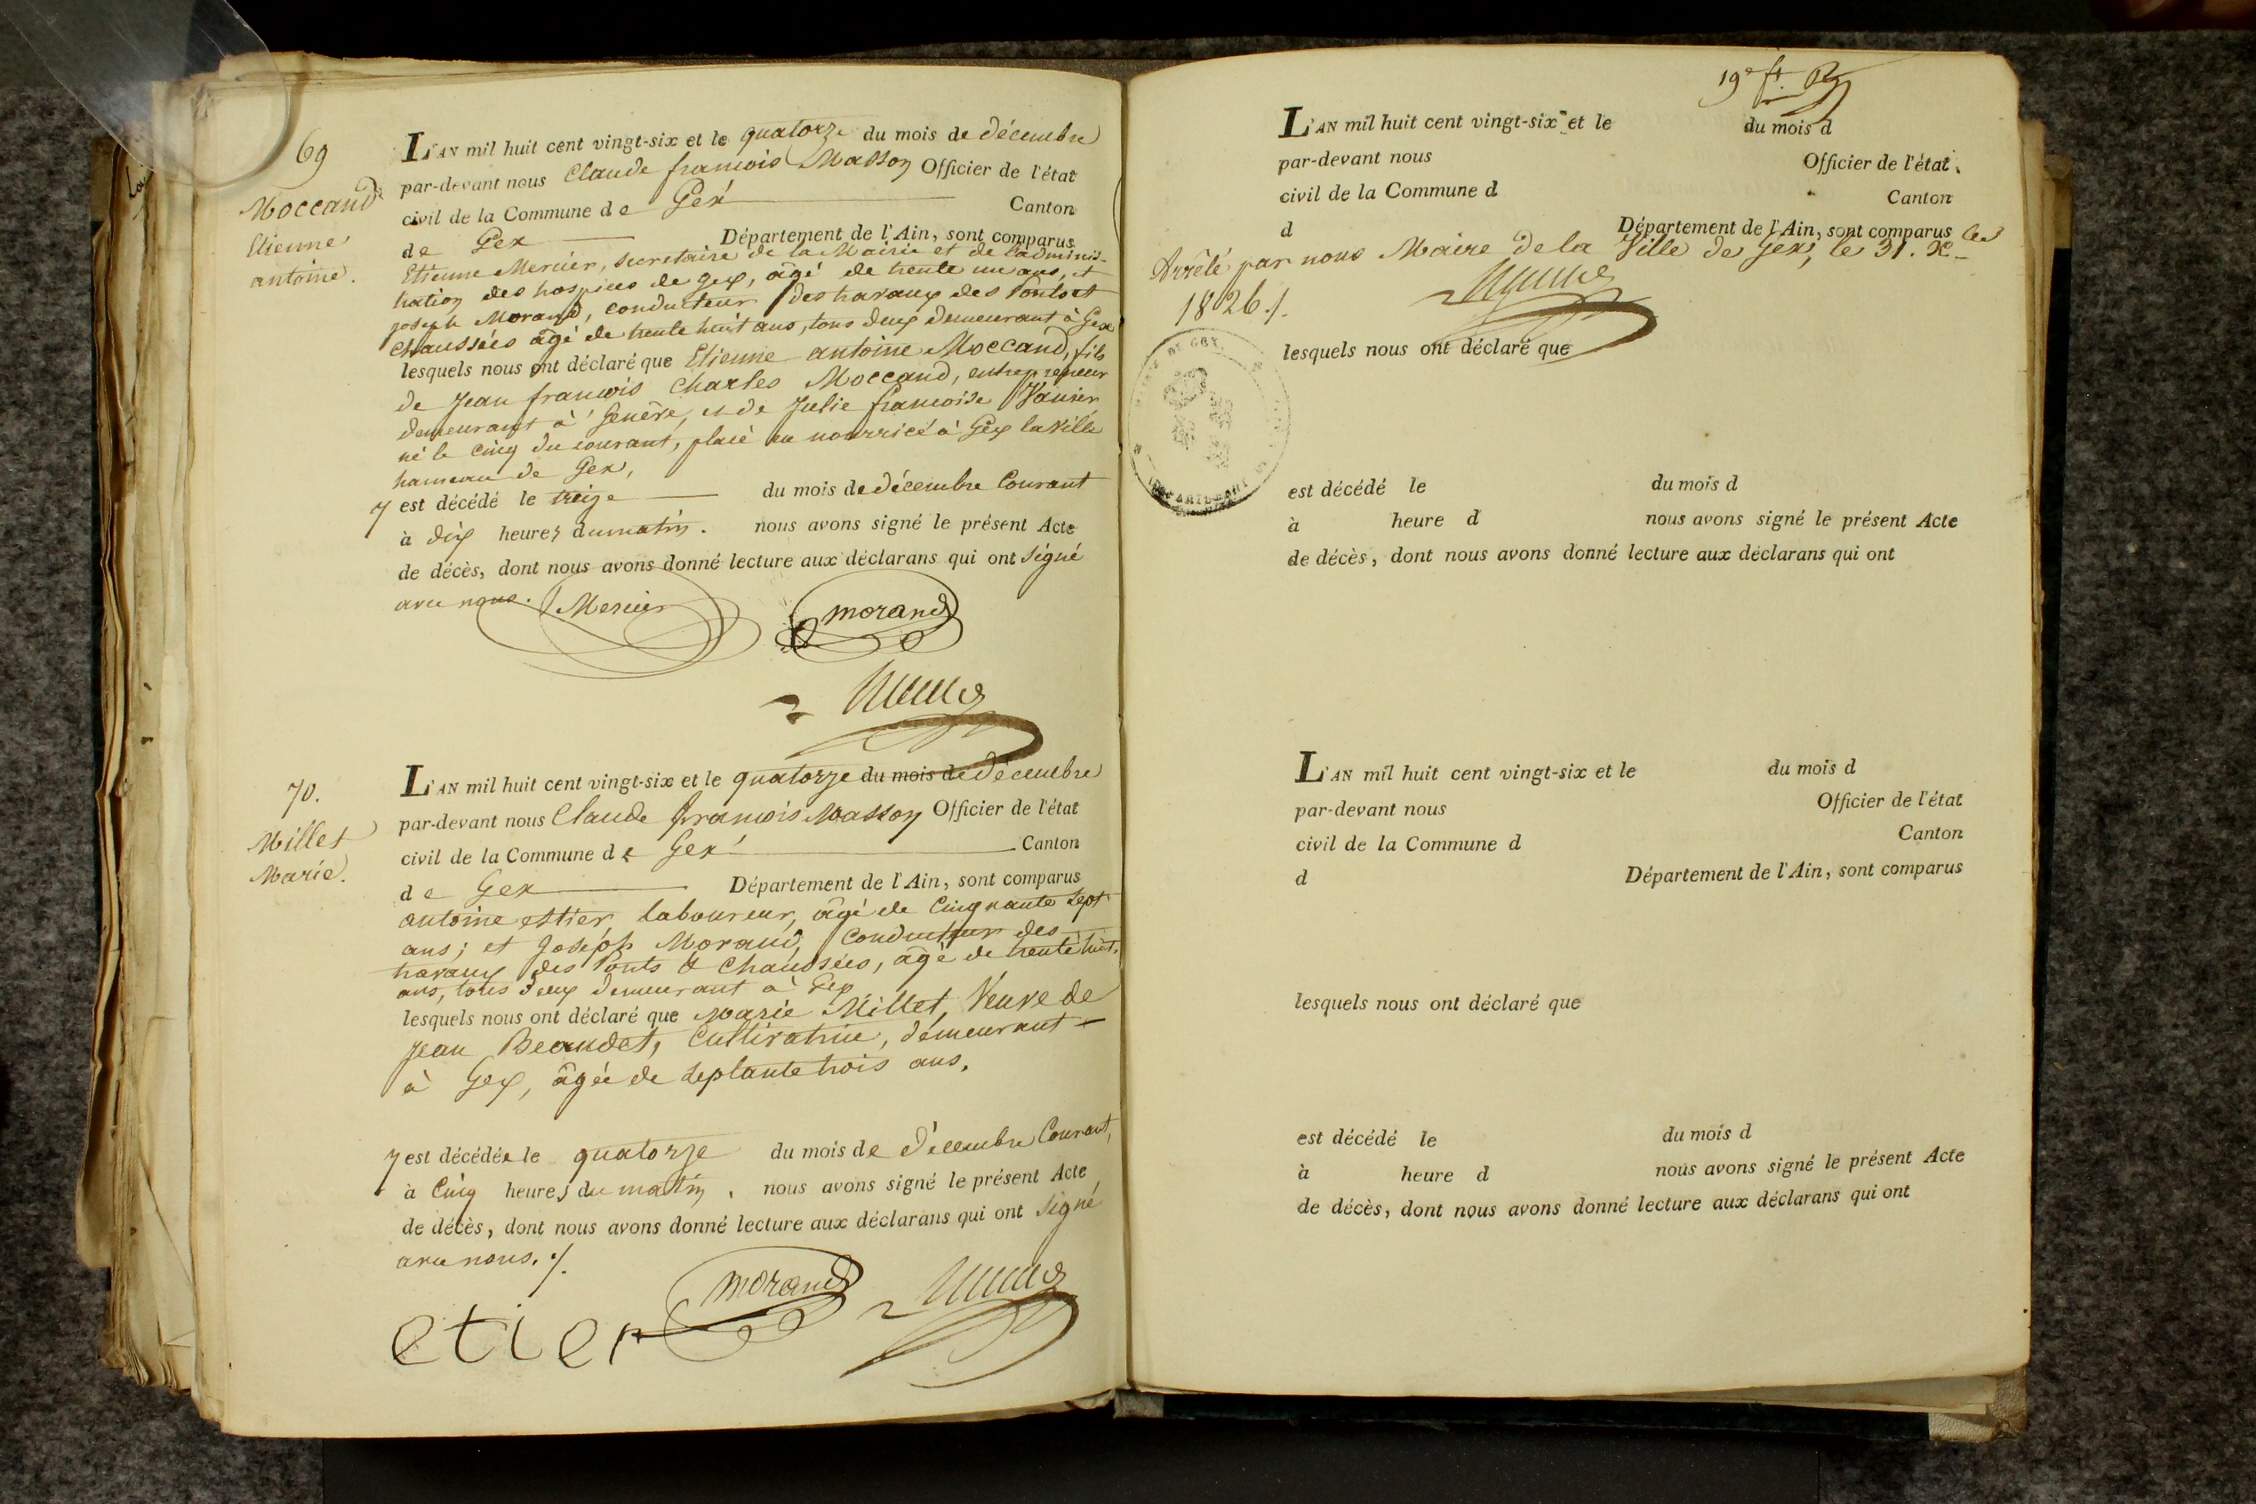 69
Moccand
Etienne
antoine.
L'AN mil huit cent vingt-six et le quatorze du mois de décembre
par-devant nous Claude françois Masson Officier de l'état
civil de la Commune de Gex Canton
de Gex Département de l'Ain, sont comparus
Etienne Mercier, secretaire de la Mairie et de l'adminis-
tration des hospices de Gex, âgé de trente un ans, et
joseph Morand, conducteur des travaux des Ponts et
chaussées âgé de trente huit ans, tous deux demeurant à Gex
lesquels nous ont déclaré que Etienne antoine Moccand, fils
de Jean françois Charles Moccand, entrepreneur
demeurant à Genève, et de Julie francoise
né le cinq du courant, placé en nourrice à Gex la Ville
hameau de Gex,
y est décédé le treize du mois de décembre Courant
à dix heures du matin. nous avons signé le présent Acte
de décès, dont nous avons donné lecture aux déclarans qui ont signé
avec nous. Mercier morand
70.
Millet
Marie.
L'AN mil huit cent vingt-six et le quatorze du mois de décembre
par-devant nous Claude françois Masson Officier de l'état
civil de la Commune de Gex Canton
de Gex Département de l'Ain, sont comparus
antoine estier, laboureur, âgé de Cinquante sept
ans; et Joseph Morand, Conducteur des
travaux des Ponts & Chaussées, âgé de trente huit
ans, tous deux demeurant à Gex
lesquels nous ont déclaré que Marie Millet, Veuve de
Jean Beaudet, Cultivatrice, demeurant
à Gex, âgée de septante trois ans,
y est décédée le quatorze du mois de décembre Courant,
à Cinq heures du matin, nous avons signé le présent Acte
de décès, dont nous avons donné lecture aux déclarans qui ont signé
avec nous./.
morand
etier
19e ft.
L'AN mil huit cent vingt-six et le du mois d
par-devant nous Officier de l'état
civil de la Commune d Canton
d Département de l'Ain, sont comparus
Arrêté par nous Maire de la Ville de Gex, le 31. Xbre
1826./.
lesquels nous ont déclaré que
est décédé le du mois d
à heure d nous avons signé le présent Acte
de décès, dont nous avons donné lecture aux déclarans qui ont
L'AN mil huit cent vingt-six et le du mois d
par-devant nous Officier de l'état
civil de la Commune d Canton
d Département de l'Ain, sont comparus
lesquels nous ont déclaré que
est décédé le du mois d
à heure d nous avons signé le présent Acte
de décès, dont nous avons donné lecture aux déclarans qui ont